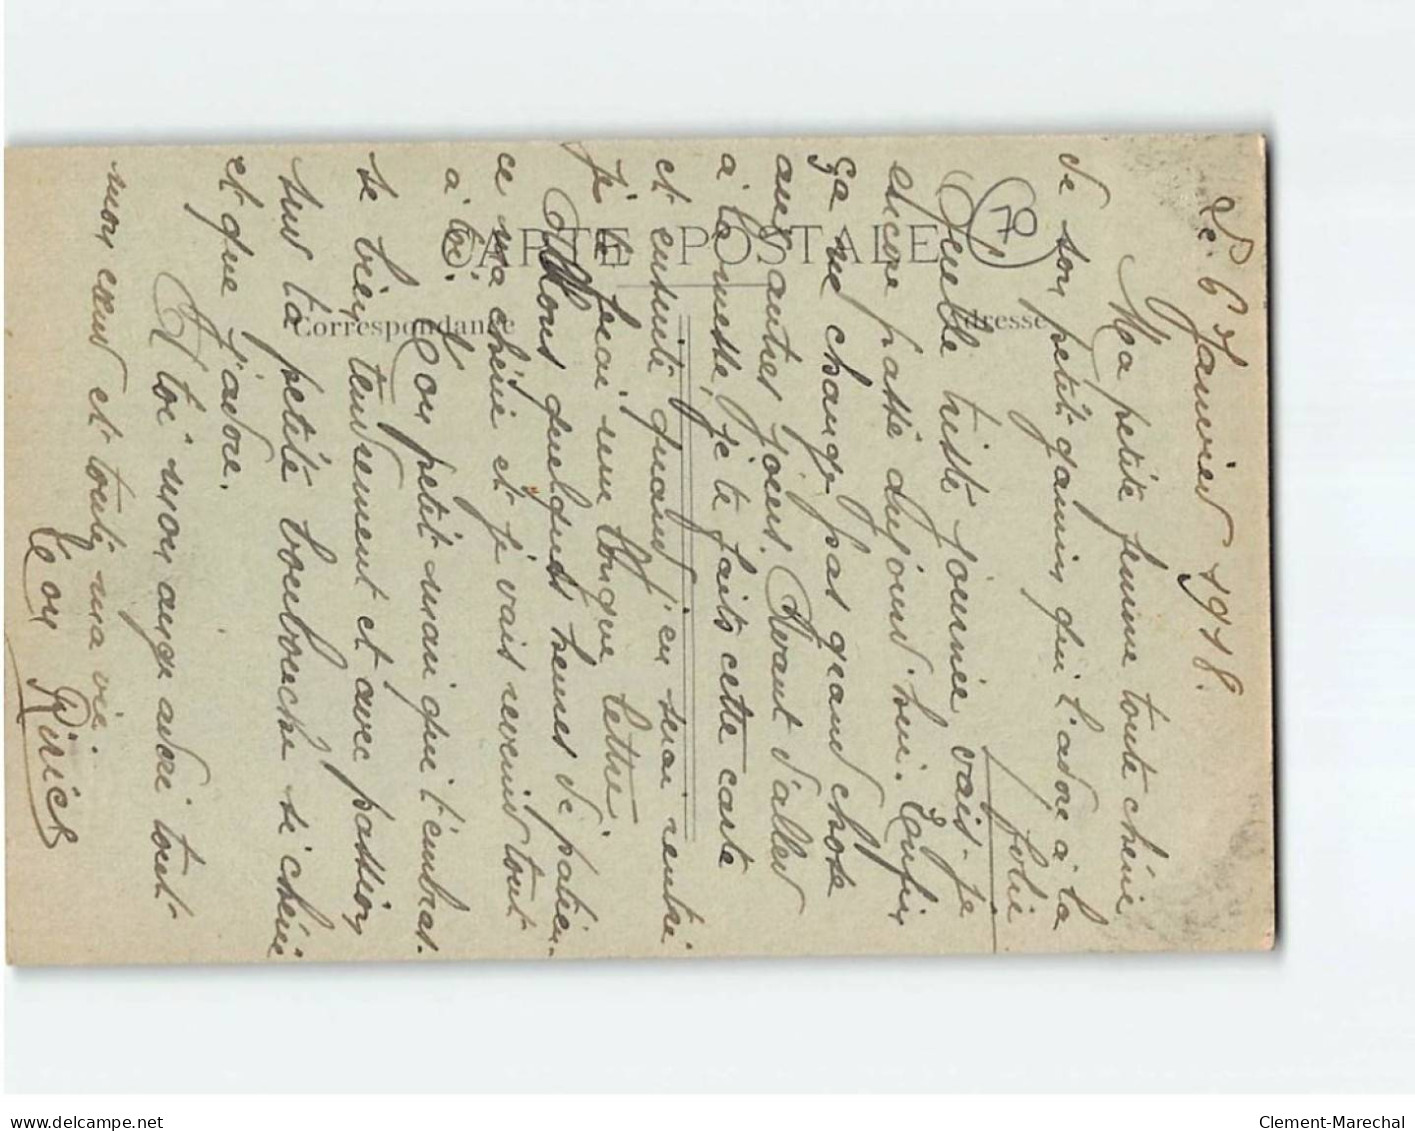 Le 6 Janvier 1918.
Ma petite femme toute chérie
de ton petit gamin qui t'adore à la
folie
Quelle triste journée vais-je
encore passé aujourd'hui. Enfin
ça me change pas grand chose
aux autres jours. Avant d'aller
à la messe, je te fais cette carte
et ensuite quand j'en serai rentré
je te ferai une longue lettre.
Allons quelques heures de patien-
ce ma chérie et je vais revenir tout
à toi.
Ton petit mari qui t'embras-
se bien tendrement et avec passion
sur ta petite bonbouche si chérie
et que j'adore.
A toi mon ange adoré tout
mon cœur et toute ma vie.
Ton Riric
CARTE POSTALE
Correspondance
Adresse
70
delcampe.net
Clement-Marechal